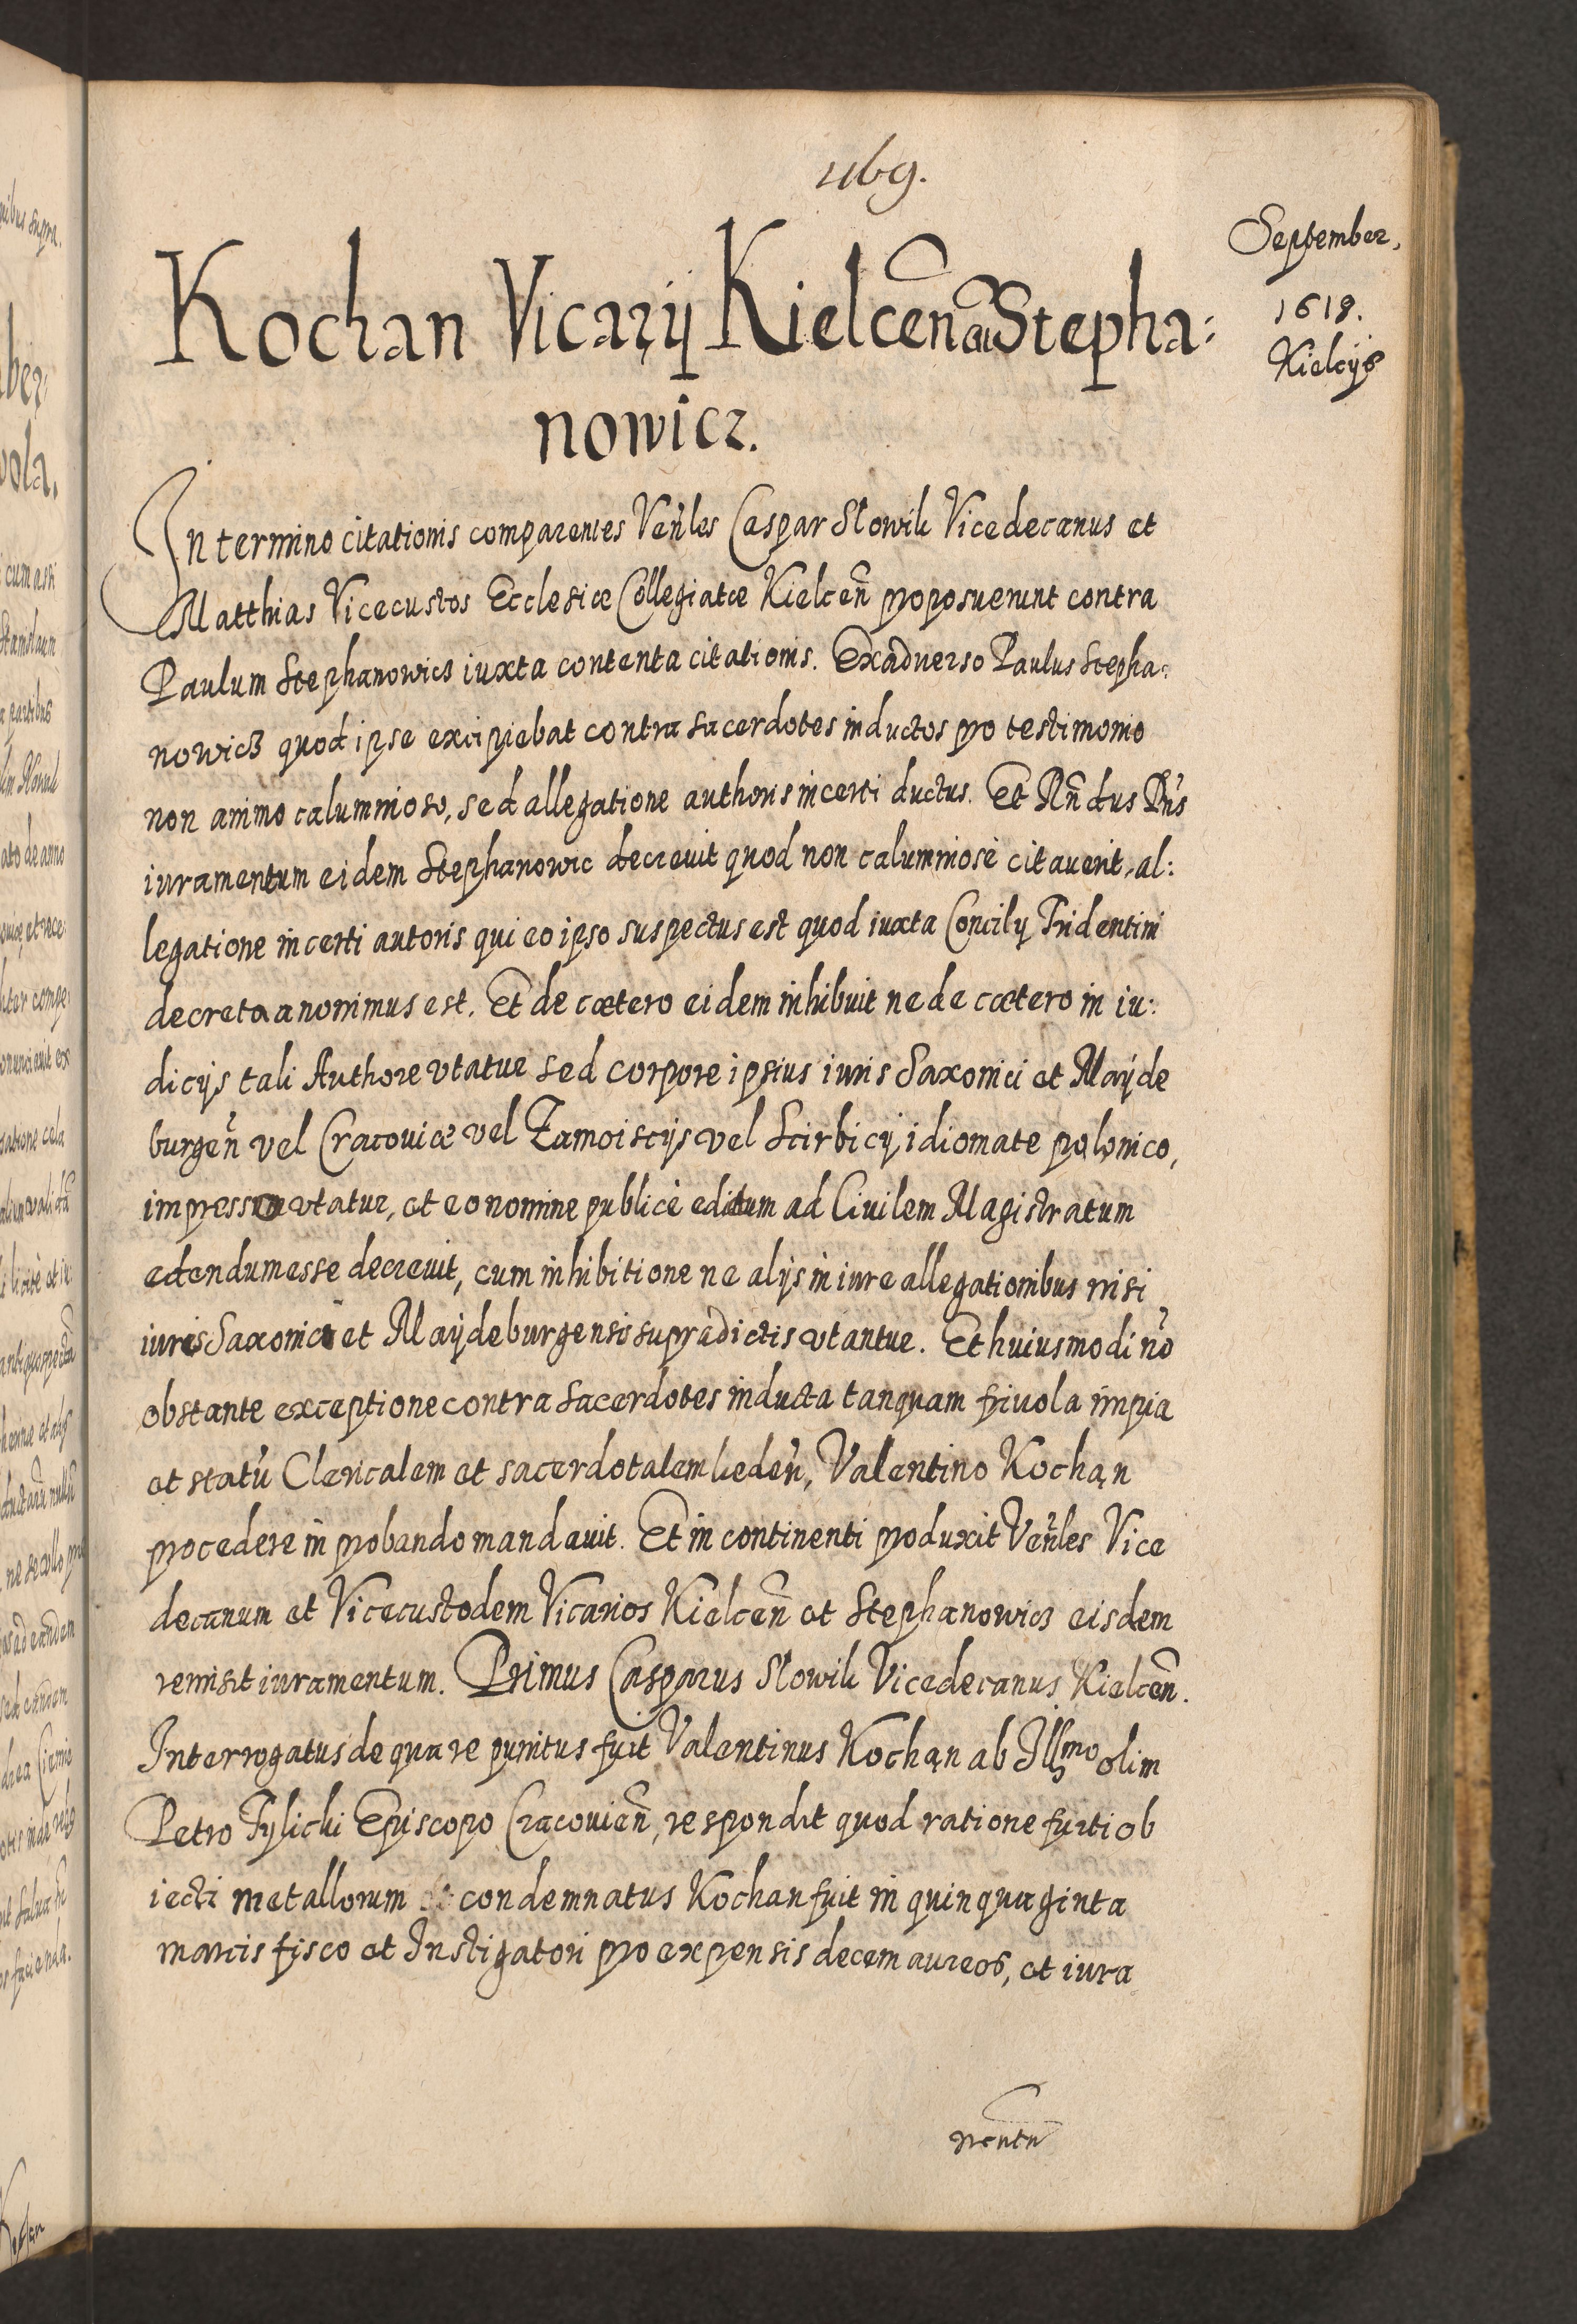 469.
September,
1618.
Kielcijs
Kochan Vicarÿ Kielcen̄ a Stepha:
nowicz.
In termino citationis comparentes Ven̄les Caspar Slowik Vicedecanus et
Matthias Vicecustos Ecclesiæ Collegiatæ Kielcen̄ proposuerunt contra
Paulum Stephanowicz iuxta contenta citationis. Exaduerso Paulus Stepha:
nowicz quod ipse excipiebat contra sacerdotes inductos pro testimonio
non animo calumnioso, sed allegatione authoris incerti ductus. Et Rn̄dus Dn̄s
iuramentum eidem Stephanowic decreuit quod non calumniosè citauerit, al:
legatione incerti autoris qui eo ipso suspectus est quod iuxta Concilij Tridentini
decreta anonimus est. Et de cætero eidem inhibuit ne de cætero in iu:
dicijs tali Authore vtatur sed corpore ipsius iuris Saxonici et Maÿde
burgen̄ vel Cracouiæ vel Zamoiscijs vel Scirbicij idiomate polonico,
impresso vtatur, et eo nomine publicè editum ad Ciuilem Magistratum
edendum esse decreuit, cum inhibitione ne alijs in iure allegationibus nisi
iuris Saxonici et Maÿdeburgensis supradictis vtantur. Et huiusmodi nō
obstante exceptione contra sacerdotes inducta tanquam friuola impia
et statū Clericalem et sacerdotalem lædeñ, Valentino Kochan
procedere in probando mandauit. Et in continenti produxit Ven̄les Vice
decanum et Vicecustodem Vicarios Kielcen̄ et Stephanowicz eisdem
remisit iuramentum. Primus Casparus Slowik Vicedecanus Kielcen̄.
Interrogatus de qua re punitus fuit Valentinus Kochan ab Illmo olim
Petro Tylicki Episcopo Cracouien̄, respondit quod ratione furti ob
iecti metallorum condemnatus Kochan fuit in quinquaginta
marcis fisco et Instigatori pro expensis decem aureos, et iura
mentu